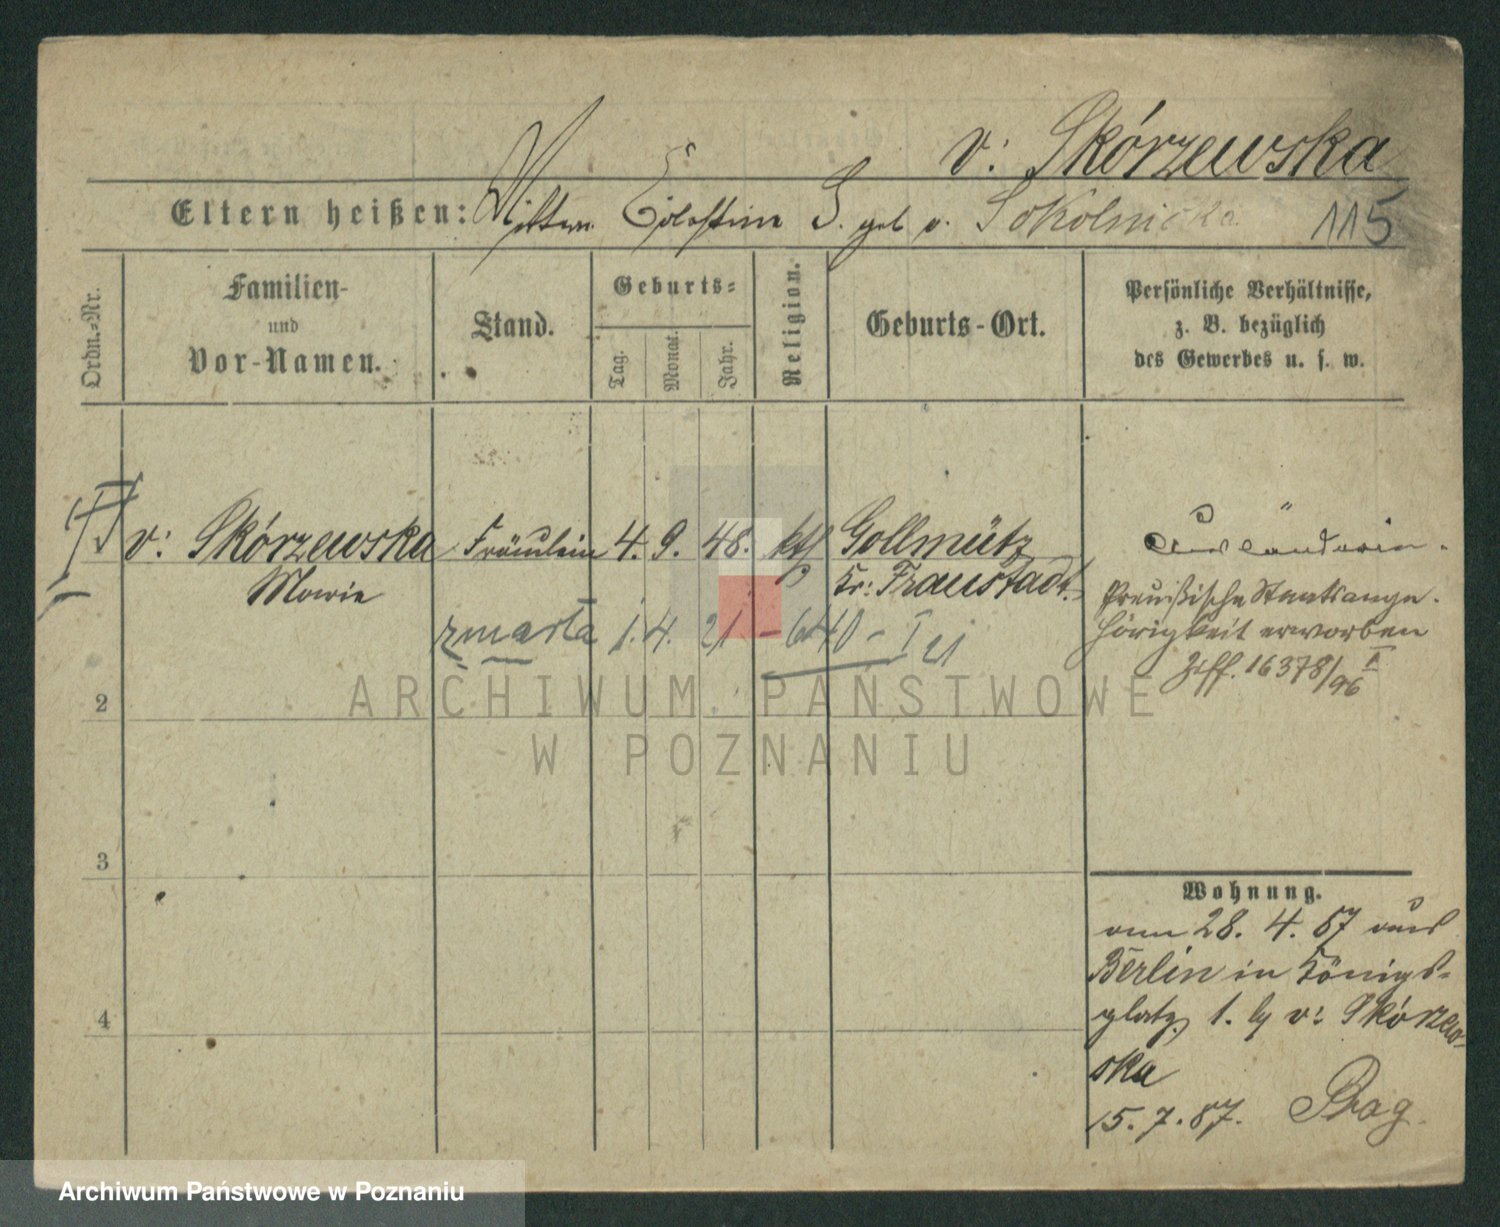 v: Skórzewska
Eltern heißen: Mutter. Cölestine S. geb v. Sokolnicka
115
Ordn.-Nr.
Familien-
und
Vor-Namen.
Stand.
Geburts-
Tag. Monat. Jahr.
Religion.
Geburts-Ort.
Persönliche Verhältnisse,
z. B. bezüglich
des Gewerbes u. s. w.
v: Skórzewska Fräulein 4. 9. 48. kth Gollmütz
Marie
Kr: Fraustadt.
zmarła 1. 4. 21 - 640 - I 21
Ausländerin.
Preußische Staatsange-
hörigkeit erworben
16378/96 I
2
3
4
Wohnung.
vom 28. 4. 87 aus
Berlin in Königs-
platz 1. b v: Skórzew-
ska
15. 7. 87. Prag
ARCHIWUM PAŃSTWOWE
W POZNANIU
Archiwum Państwowe w Poznaniu